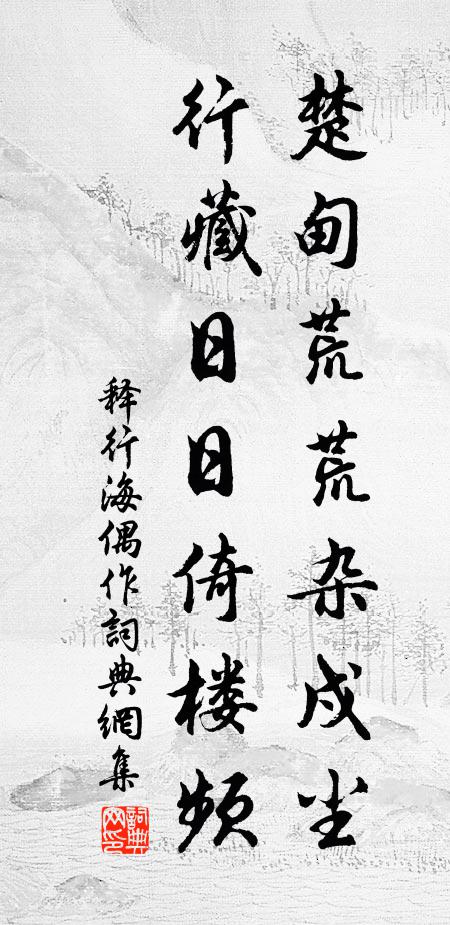 楚甸荒荒杂戍尘
行藏日日倚楼频
释行海偶作詞典網集
詞典网印